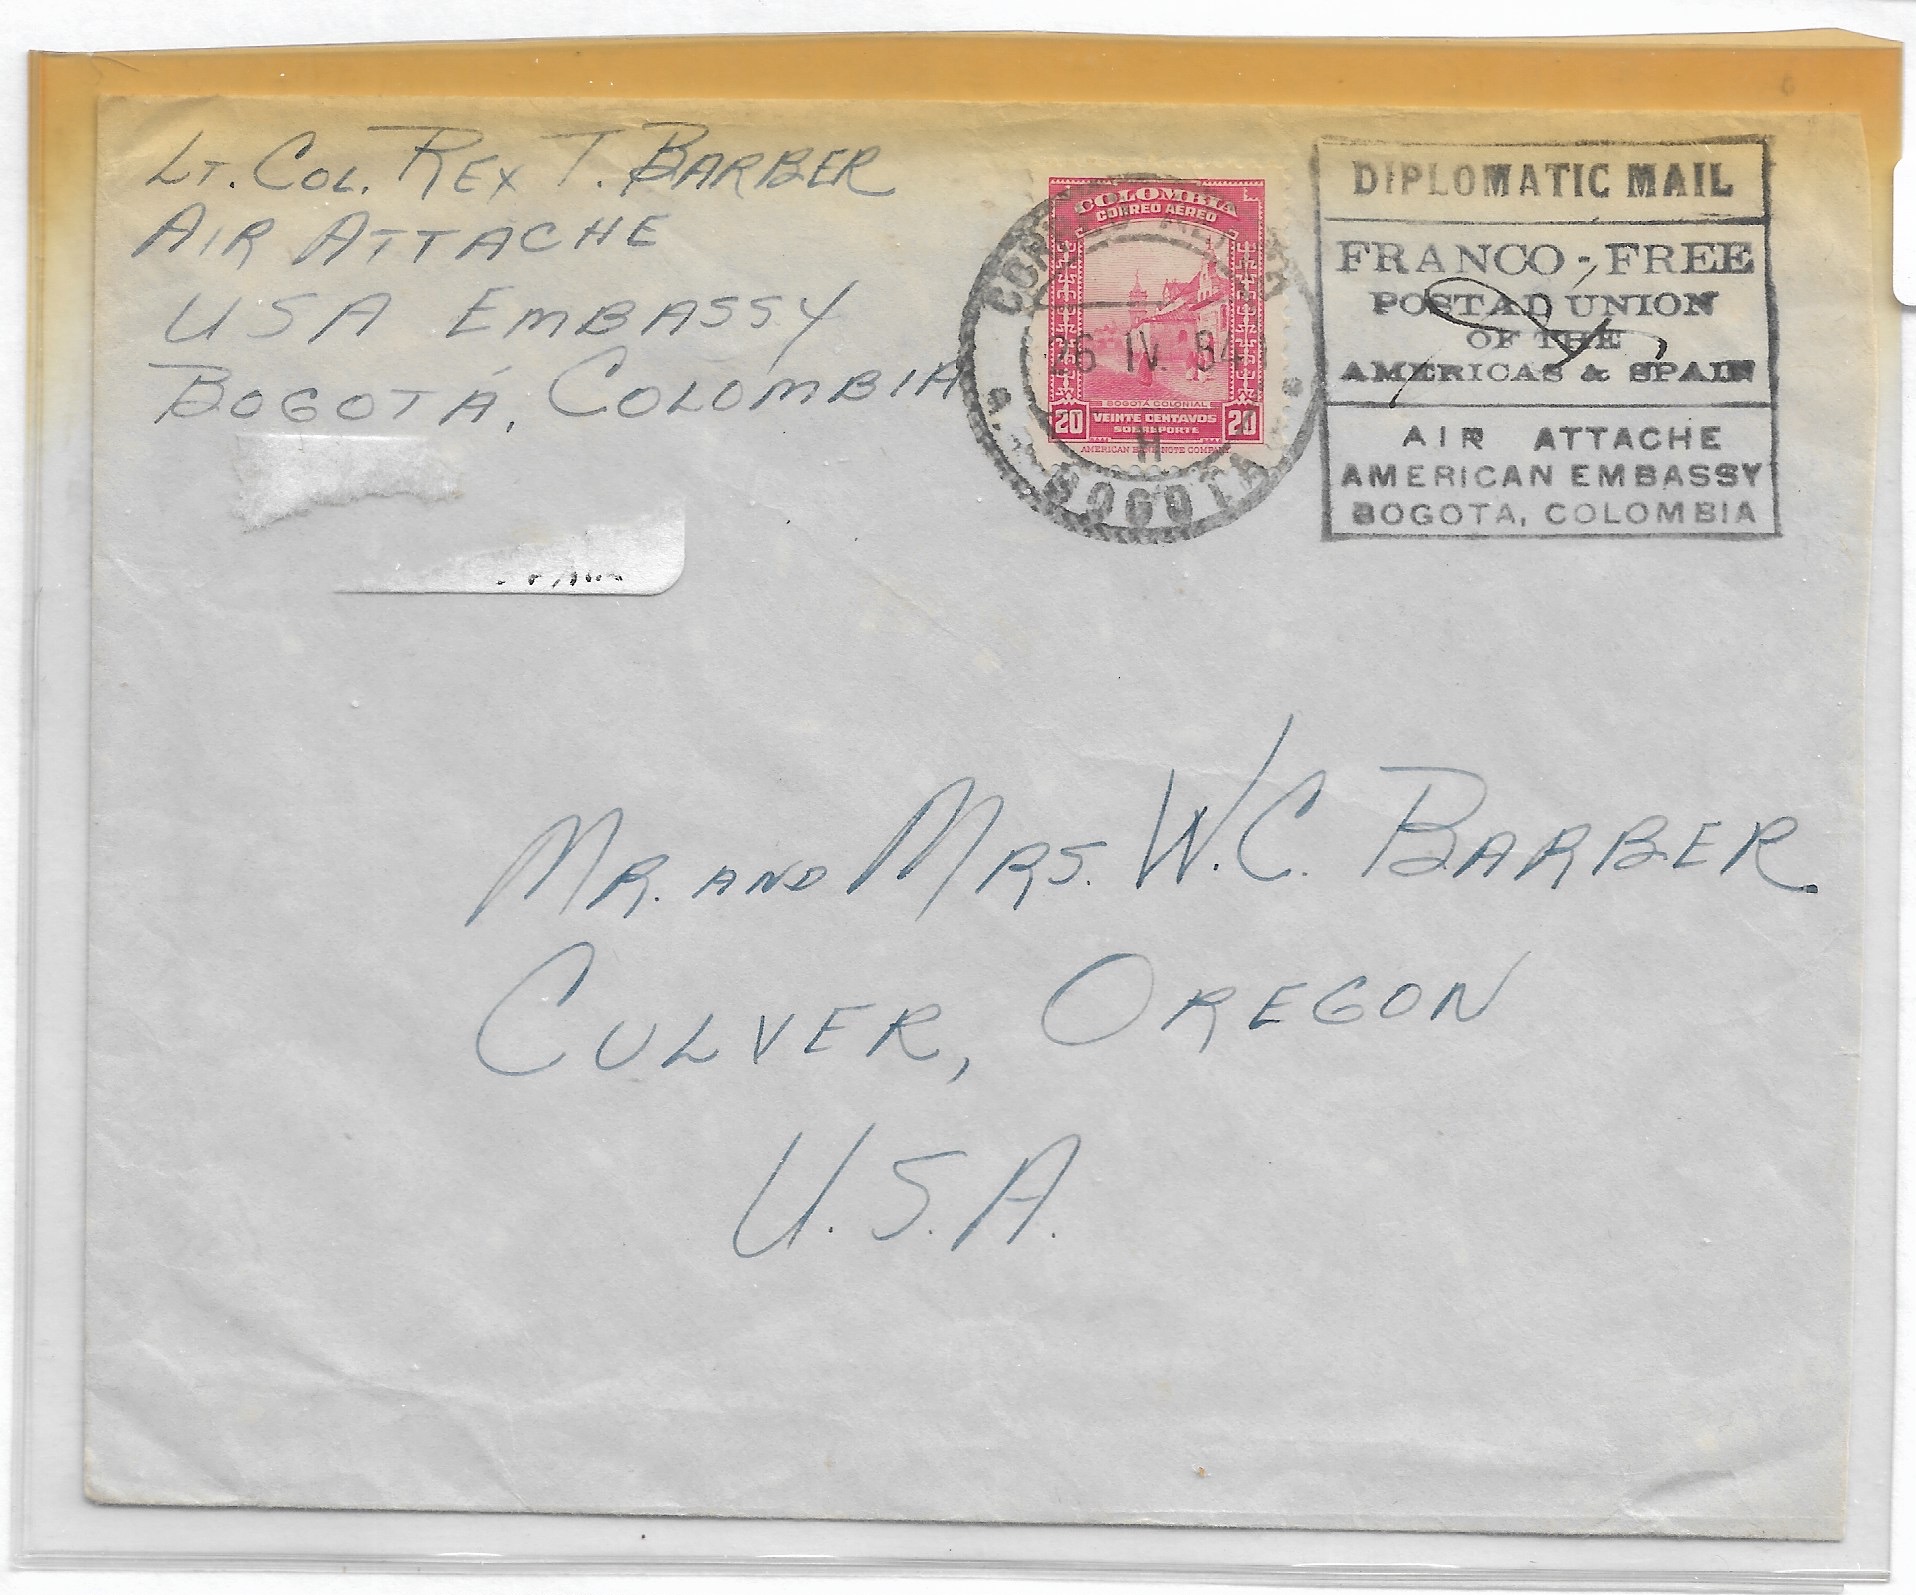 Lt. Col. Rex T. Barber
Air Attache
USA Embassy
Bogotá, Colombia
COLOMBIA
CORREO AÉREO
BOGOTA COLONIAL
20 VEINTE CENTAVOS 20
SOBREPORTE
AMERICAN BANK NOTE COMPANY
26 IV. 54
H
BOGOTA
DIPLOMATIC MAIL
FRANCO-FREE
POSTAD UNION
OF THE
AMERICAS & SPAIN
AIR ATTACHE
AMERICAN EMBASSY
BOGOTA, COLOMBIA
Mr. and Mrs. W.C. Barber
Culver, Oregon
U.S.A.